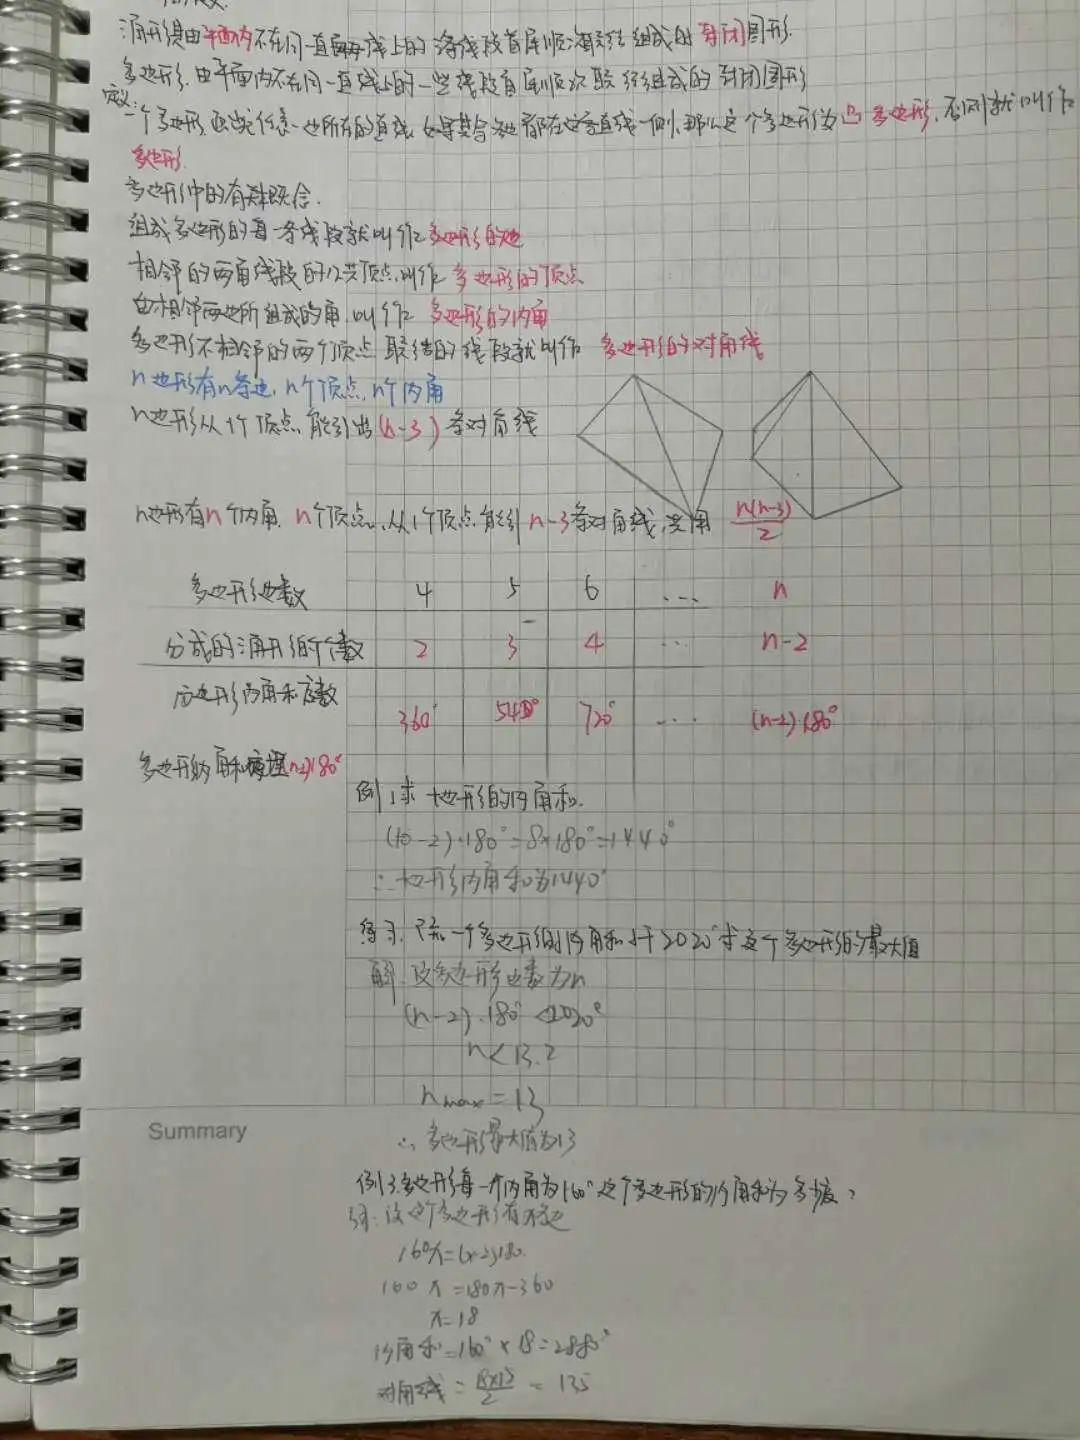 三角形是由平面内不在同一直线上的三条线段首尾顺次联结组成的封闭图形.
多边形.由平面内不在同一直线上的一些线段首尾顺次联结组成的封闭图形
定义:一个多边形,任意一边所在的直线,如果其余各边都在这条直线一侧,那么这个多边形为凸多边形,否则就叫作
多边形.
多边形中的有关概念.
组成多边形的每一条线段就叫作多边形的边
相邻的两角线段的公共顶点叫作 多边形的顶点
由相邻两边所组成的角,叫作 多边形的内角
多边形不相邻的两个顶点 联结的线段就叫作 多边形的对角线
n边形有n条边,n个顶点,n个内角
n边形从1个顶点,能引出(n-3)条对角线
n边形有n个内角,n个顶点,从1个顶点能引n-3条对角线,共用 n(n-3)/2
多边形边数 4 5 6 ... n
分成的三角形的个数 2 3 4 ... n-2
多边形内角和度数 360° 540° 720° ... (n-2)·180°
多边形内角和定理(n-2)180°
例1求十边形的内角和.
(10-2)·180°=8×180°=1440°
∴十边形内角和为1440°
练习.已知一个多边形的内角和小于2020°求这个多边形的最大值
解.设多边形边数为n
(n-2).180°<2020°
n<13.2
nmax=13
Summary
∴多边形最大值为13
例3.多边形每一个内角为160°这个多边形的内角和为多少度?
解:设这个多边形有x边
160x=(x-2)180.
160x=180x-360
x=18
内角和=160°×18=2880°
对角线=18×15/2=135